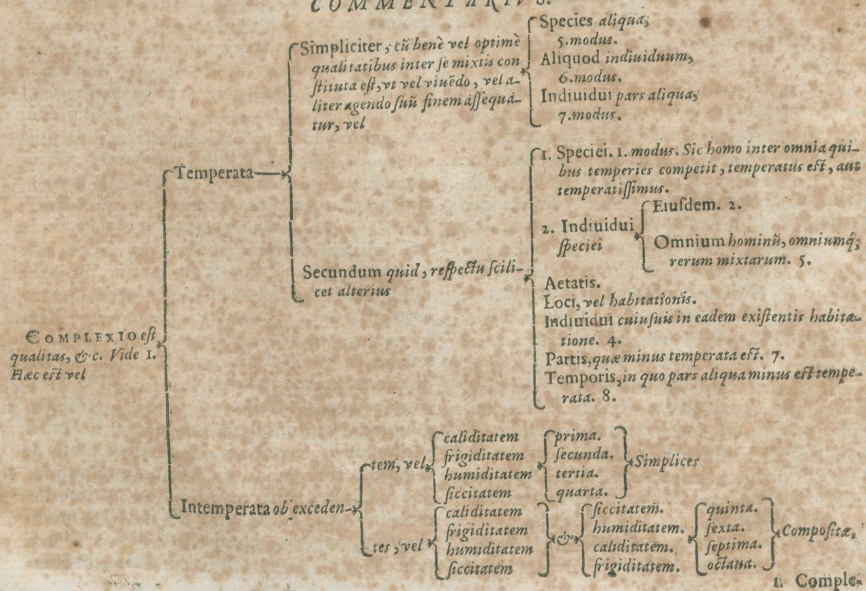 COMMENTARIVS.
Simpliciter, cū benè vel optimè
qualitatibus inter se mixtis con
stituta est, vt vel viuēdo, vel a-
liter agendo suū finem assequā-
tur, vel
Species aliqua,
5. modus.
Aliquod indiuiduum,
6. modus.
Indiuidui pars aliqua,
7. modus.
Temperata
Secundum quid, respectu scili-
cet alterius
1. Speciei. 1. modus. Sic homo inter omnia qui-
bus temperies competit, temperatus est, aut
temperatissimus.
2. Indiuidui
speciei
Eiusdem. 2.
Omnium hominū, omniumq;
rerum mixtarum. 5.
Aetatis.
Loci, vel habitationis.
Indiuidui cuiusuis in eadem existentis habita-
tione. 4.
Partis, quæ minus temperata est. 7.
Temporis, in quo pars aliqua minus est tempe-
rata. 8.
COMPLEXIO est
qualitas, &c. Vide 1.
Hæc est vel
Intemperata ob exceden-
tem, vel
caliditatem
frigiditatem
humiditatem
siccitatem
prima.
secunda.
tertia.
quarta.
Simplices
tes, vel
caliditatem
frigiditatem
humiditatem
siccitatem
&
siccitatem.
humiditatem.
caliditatem.
frigiditatem.
quinta.
sexta.
septima.
octaua.
Compositæ.
1. Comple-